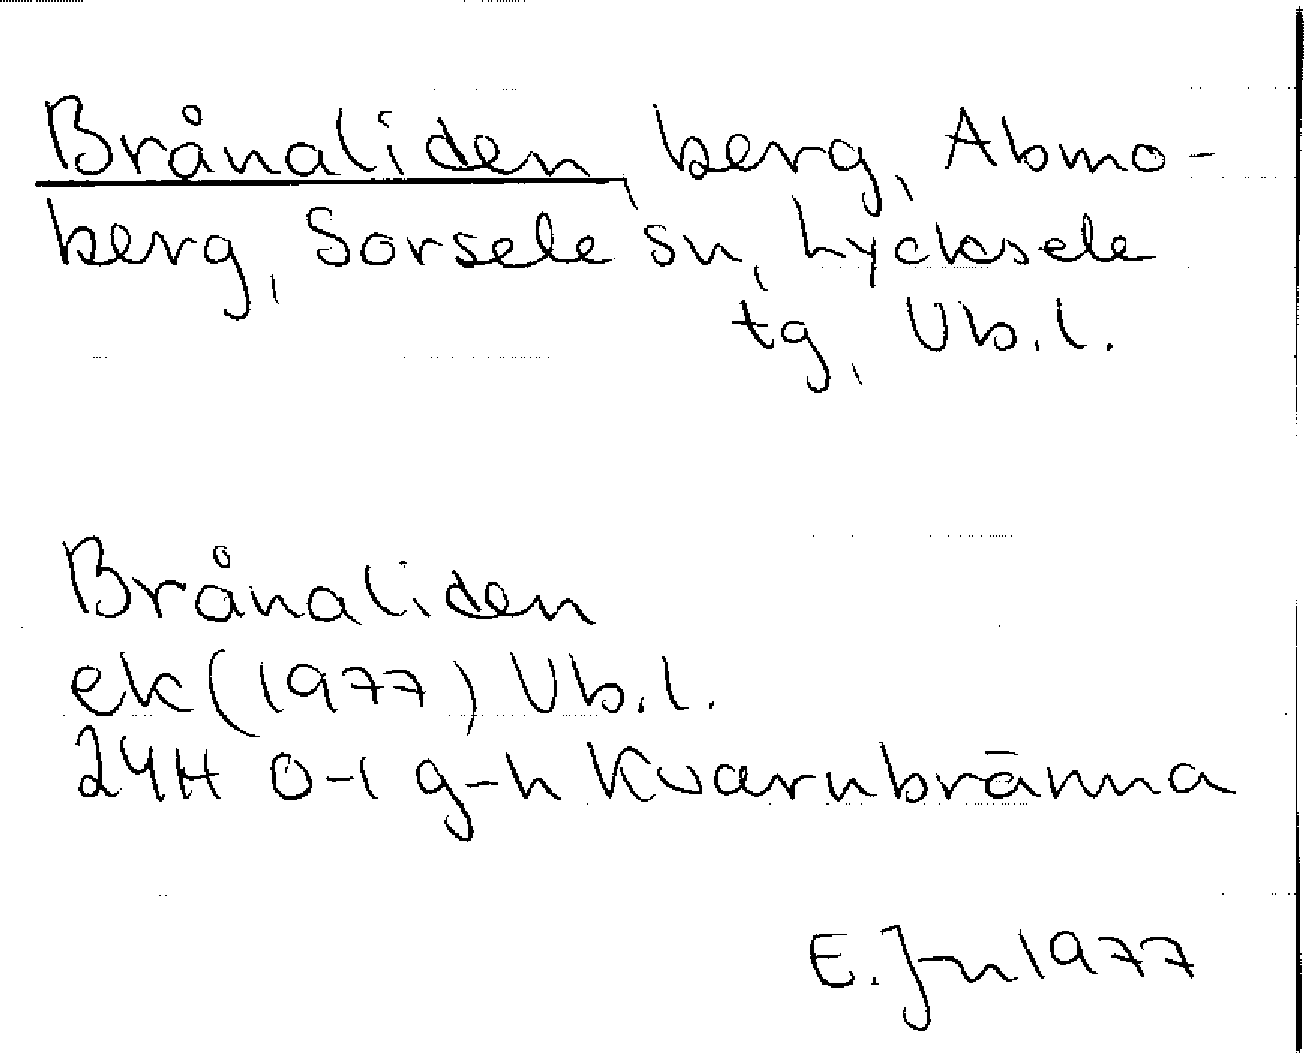 Brånaliden, berg, Abmo-
berg, Sorsele sn, Lycksele
tg, Vb.l.
Brånaliden
ek (1977) Vb.l.
24H 0-1 g-h Kvarnbränna
E. Jn 1977